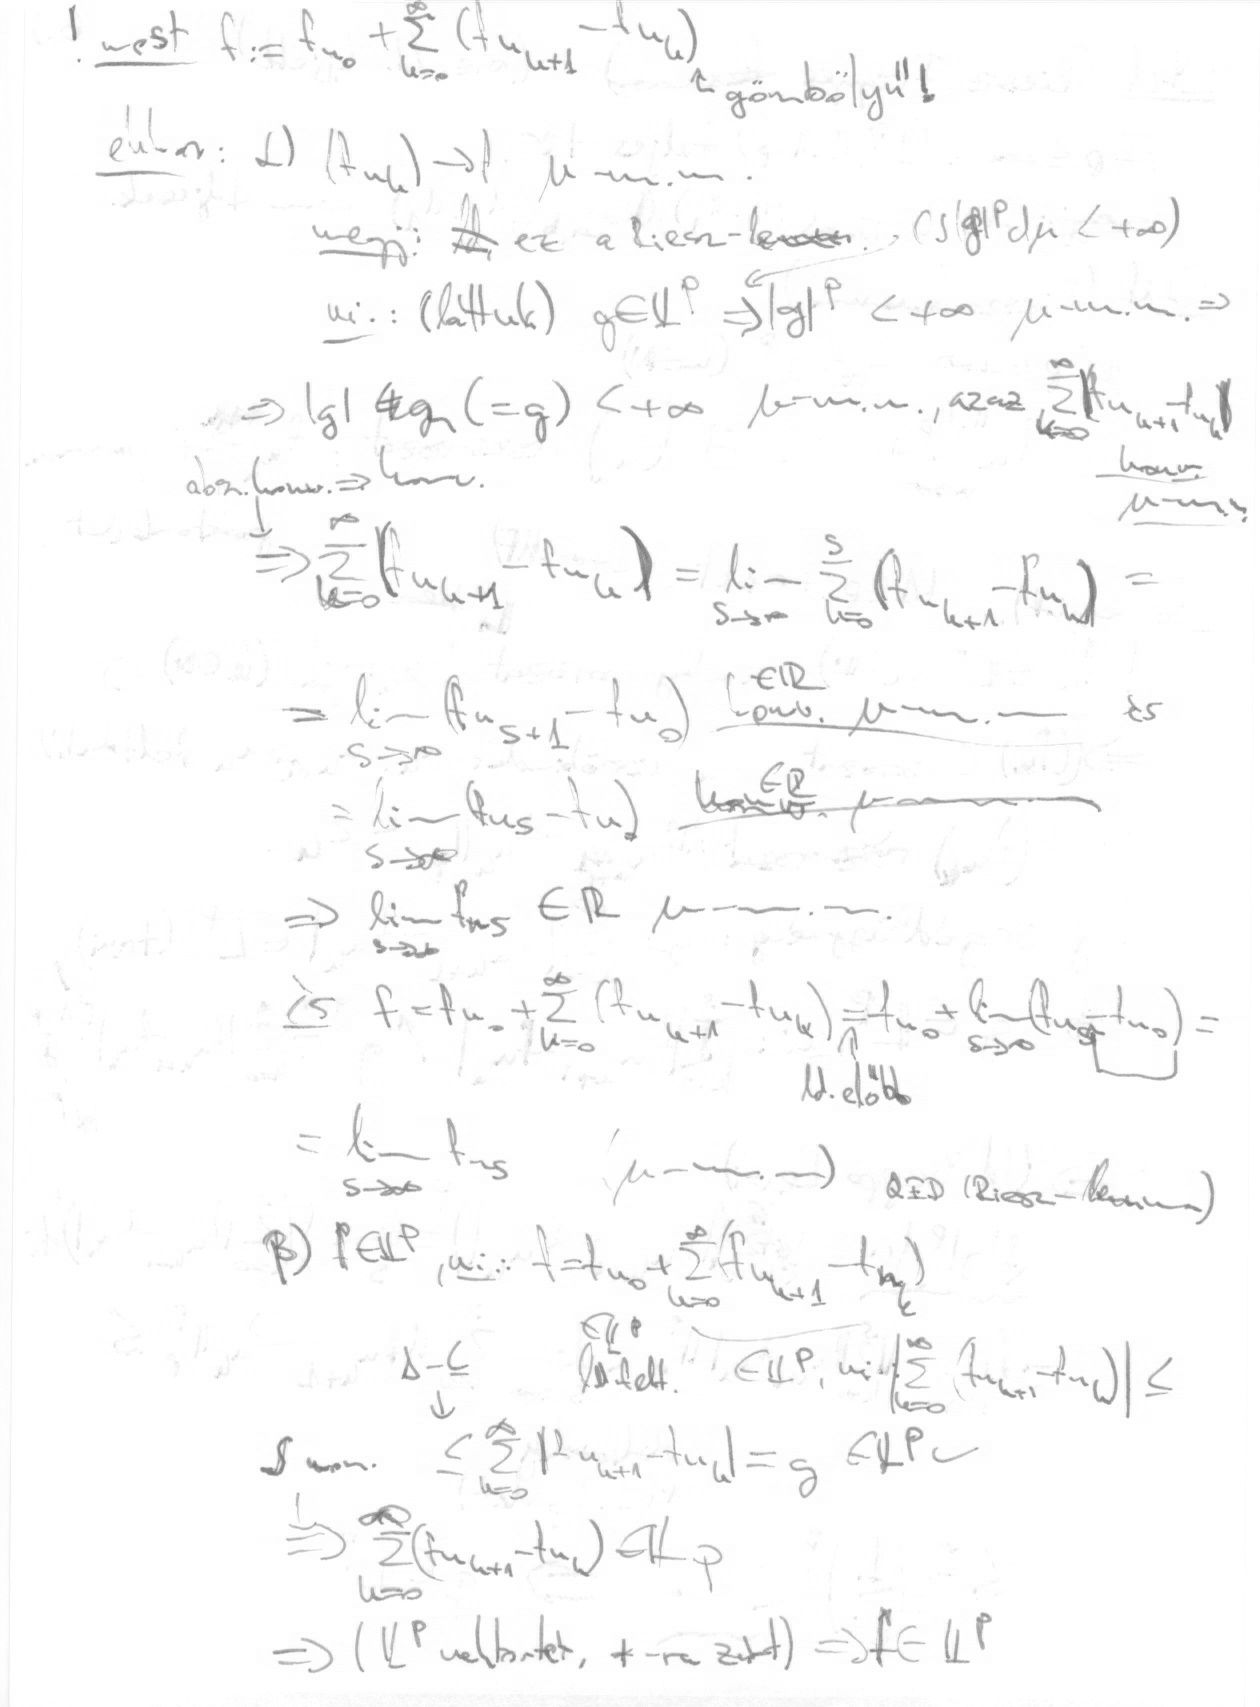 ! most f := f_{n_0} + \sum_{k=0}^{\infty} (f_{n_{k+1}} - f_{n_k})
↖ gömbölyű!
ekkor: 1) (f_{n_k}) → f μ-m.m.
megj: ez a Riesz-lemma. (∫|g|^p dμ < +∞)
ui.: (láttuk) g ∈ L^p ⇒ |g|^p < +∞ μ-m.m. ⇒
⇒ |g| (= g) < +∞ μ-m.m., azaz \sum_{k=0}^{\infty} |f_{n_{k+1}} - f_{n_k}|
konv. μ-m.m.
absz. konv. ⇒ konv.
↓
⇒ \sum_{k=0}^{\infty} (f_{n_{k+1}} - f_{n_k}) = lim_{s→∞} \sum_{k=0}^{s} (f_{n_{k+1}} - f_{n_k}) =
= lim_{s→∞} (f_{n_{s+1}} - f_{n_0}) ∈ℝ konv. μ-m.m. és
= lim_{s→∞} (f_{n_s} - f_{n_0}) ∈ℝ konv. μ-m.m.
⇒ lim_{s→∞} f_{n_s} ∈ ℝ μ-m.m.
és f = f_{n_0} + \sum_{k=0}^{\infty} (f_{n_{k+1}} - f_{n_k}) = f_{n_0} + lim_{s→∞} (f_{n_s} - f_{n_0}) =
↑
ld. előbb
= lim_{s→∞} f_{n_s} (μ-m.m.) QED (Riesz-lemma)
β) f ∈ L^p, ui.: f = f_{n_0} + \sum_{k=0}^{\infty} (f_{n_{k+1}} - f_{n_k})
∈ L^p
Δ-≤ ld. felt. ∈ L^p, ui. |\sum_{k=0}^{\infty} (f_{n_{k+1}} - f_{n_k})| ≤
↓
∫ mon. ≤ \sum_{k=0}^{\infty} |f_{n_{k+1}} - f_{n_k}| = g ∈ L^p ✓
↓
⇒ \sum_{k=0}^{\infty} (f_{n_{k+1}} - f_{n_k}) ∈ L^p
⇒ (L^p vektortér, +-ra zárt) ⇒ f ∈ L^p